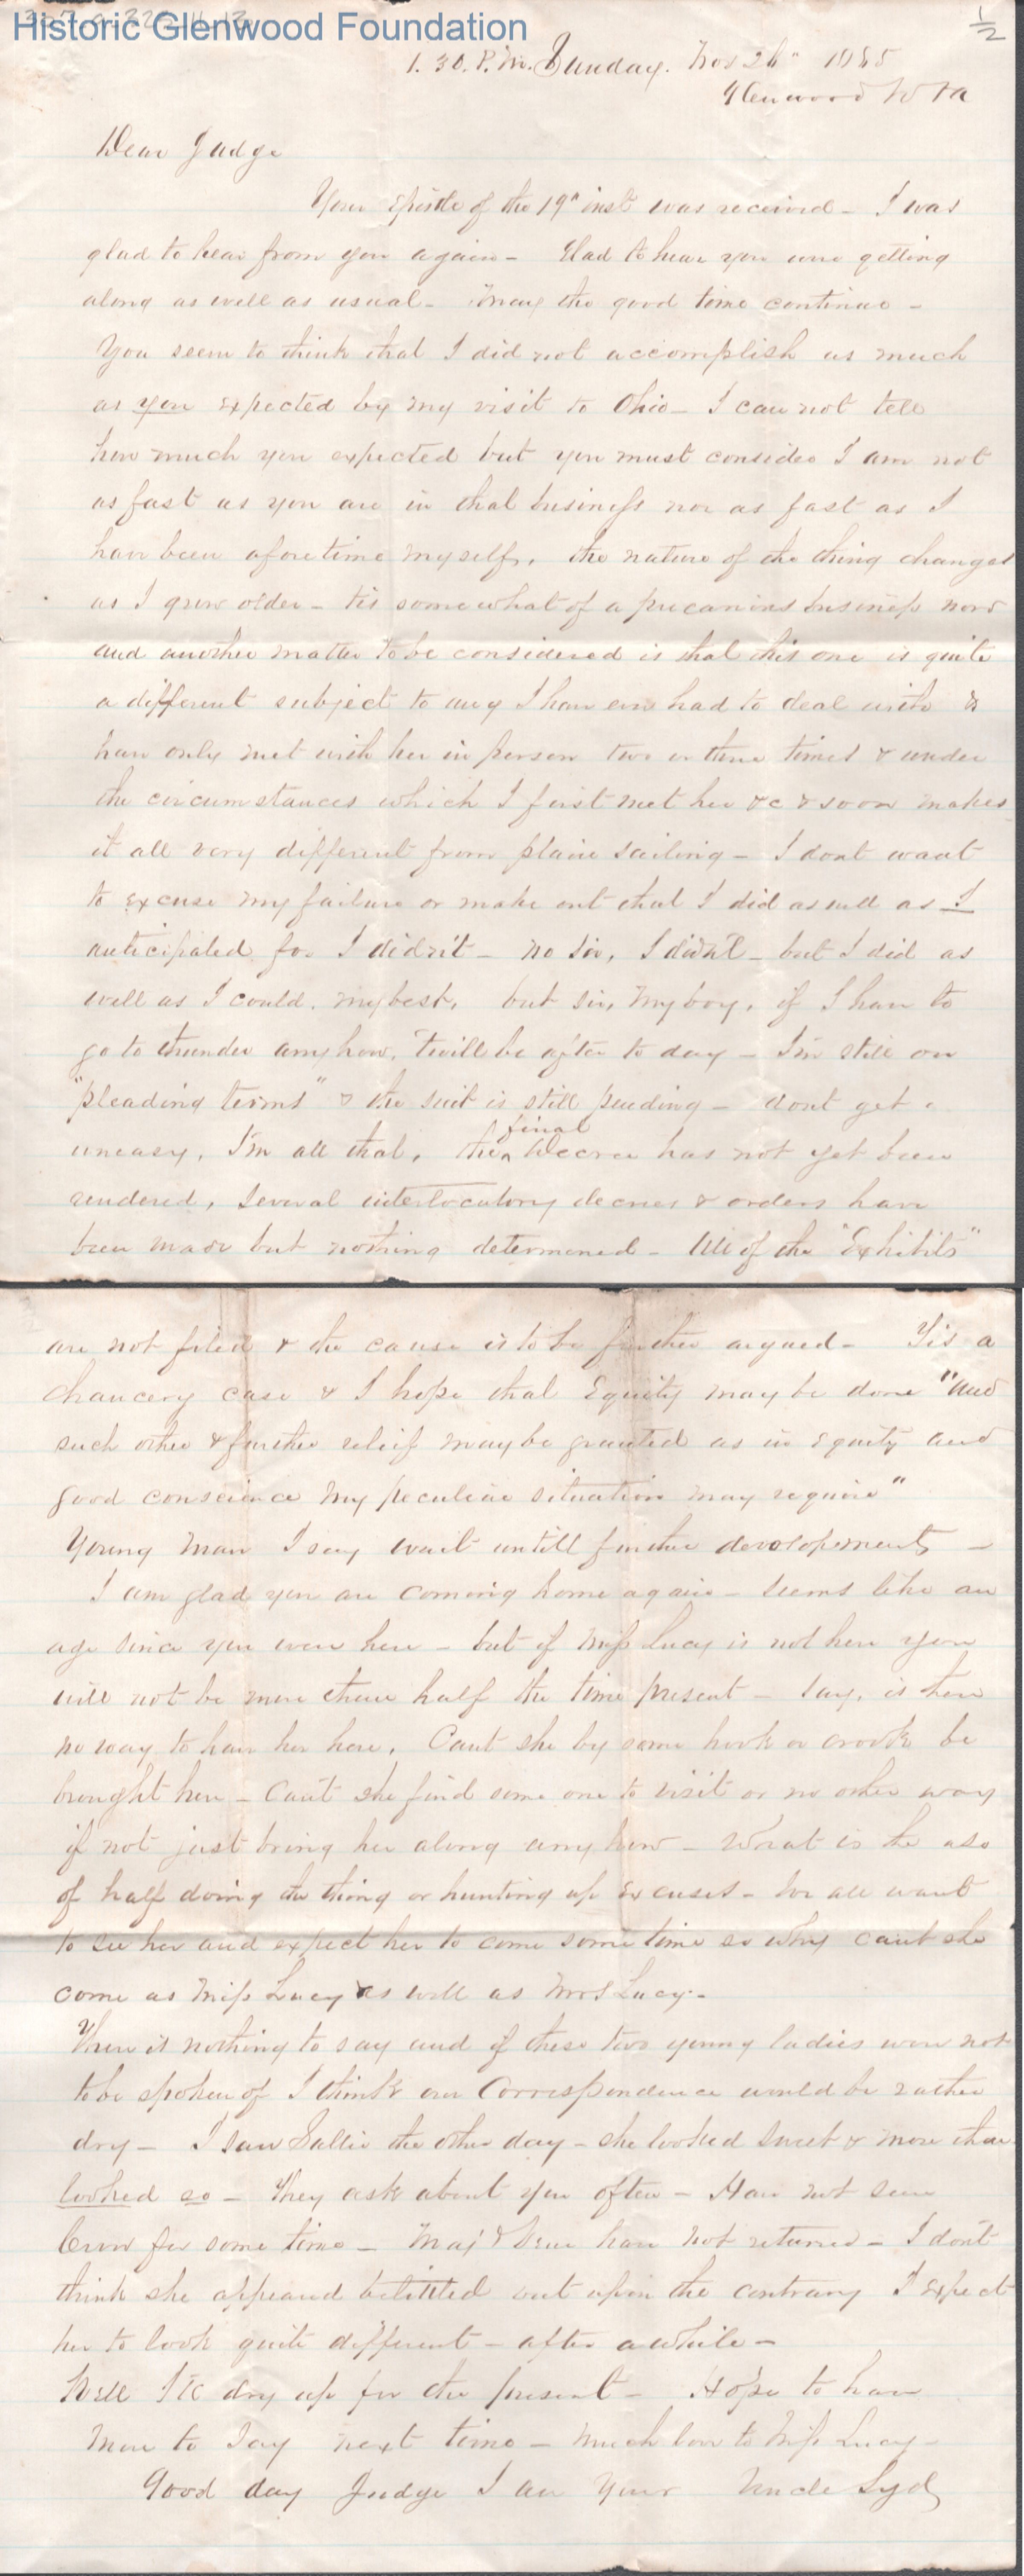 Historic Glenwood Foundation
1/2
1.30. P.M. Sunday. Nov 26" 1865
Glenwood W Va
Dear Judge
Your Epistle of the 19" inst was received - I was
glad to hear from you again - Glad to hear you were getting
along as well as usual - May the good time continue -
You seem to think that I did not accomplish as much
as you expected by my visit to Ohio - I can not tell
how much you expected but you must consider I am not
as fast as you are in that business nor as fast as I
have been aforetime myself. the nature of the thing changes
as I grow older - tis somewhat of a precarious business now
and another matter to be considered is that this one is quite
a different subject to any I have ever had to deal with &
have only met with her in person two or three times & under
the circumstances which I first met her &c & soon makes
it all very different from plain sailing - I dont want
to excuse my failure or make out that I did as well as I
anticipated for I didn't - no Sir, I didn't - but I did as
well as I could. my best. but sir, my boy, if I have to
go to thunder anyhow, 'twill be after to day - I'm still on
"pleading terms" & the suit is still pending - dont get
uneasy, I'm all that, the final Decree has not yet been
rendered, several interlocutory decrees & orders have
been made but nothing determened - All of the "Exhibits"
are not filed & the cause is to be further argued - Tis a
Chancery case & I hope that Equity may be done "And
such other & further relief may be granted as in Equity and
good conscience my peculiar situation may require"
Young man I say wait untill further developements -
I am glad you are coming home again - Seems like an
age since you were here - but if Miss Lucy is not here you
will not be more than half the time present - Say, is there
no way to have her here. Cant she by some hook or crook be
brought here - Can't she find some one to visit or no other way
if not just bring her along any how - What is the use
of half doing the thing or hunting up Excuses - We all want
to see her and expect her to come some time so why cant she
come as Miss Lucy as well as Mrs Lucy -
There is nothing to say and if these two young ladies were not
to be spoken of I think our Correspondence would be rather
dry - I saw Sallie the other day - she looked sweet & more than
looked so - They ask about you often - Have not seen
for some time - Maj & have not returned - I don't
think she appeared belittled but upon the contrary I expect
her to look quite different - after a while -
Well I'll dry up for the present - Hope to have
More to Say next time - Much love to Miss Lucy -
Good day Judge I am Your Uncle Syd